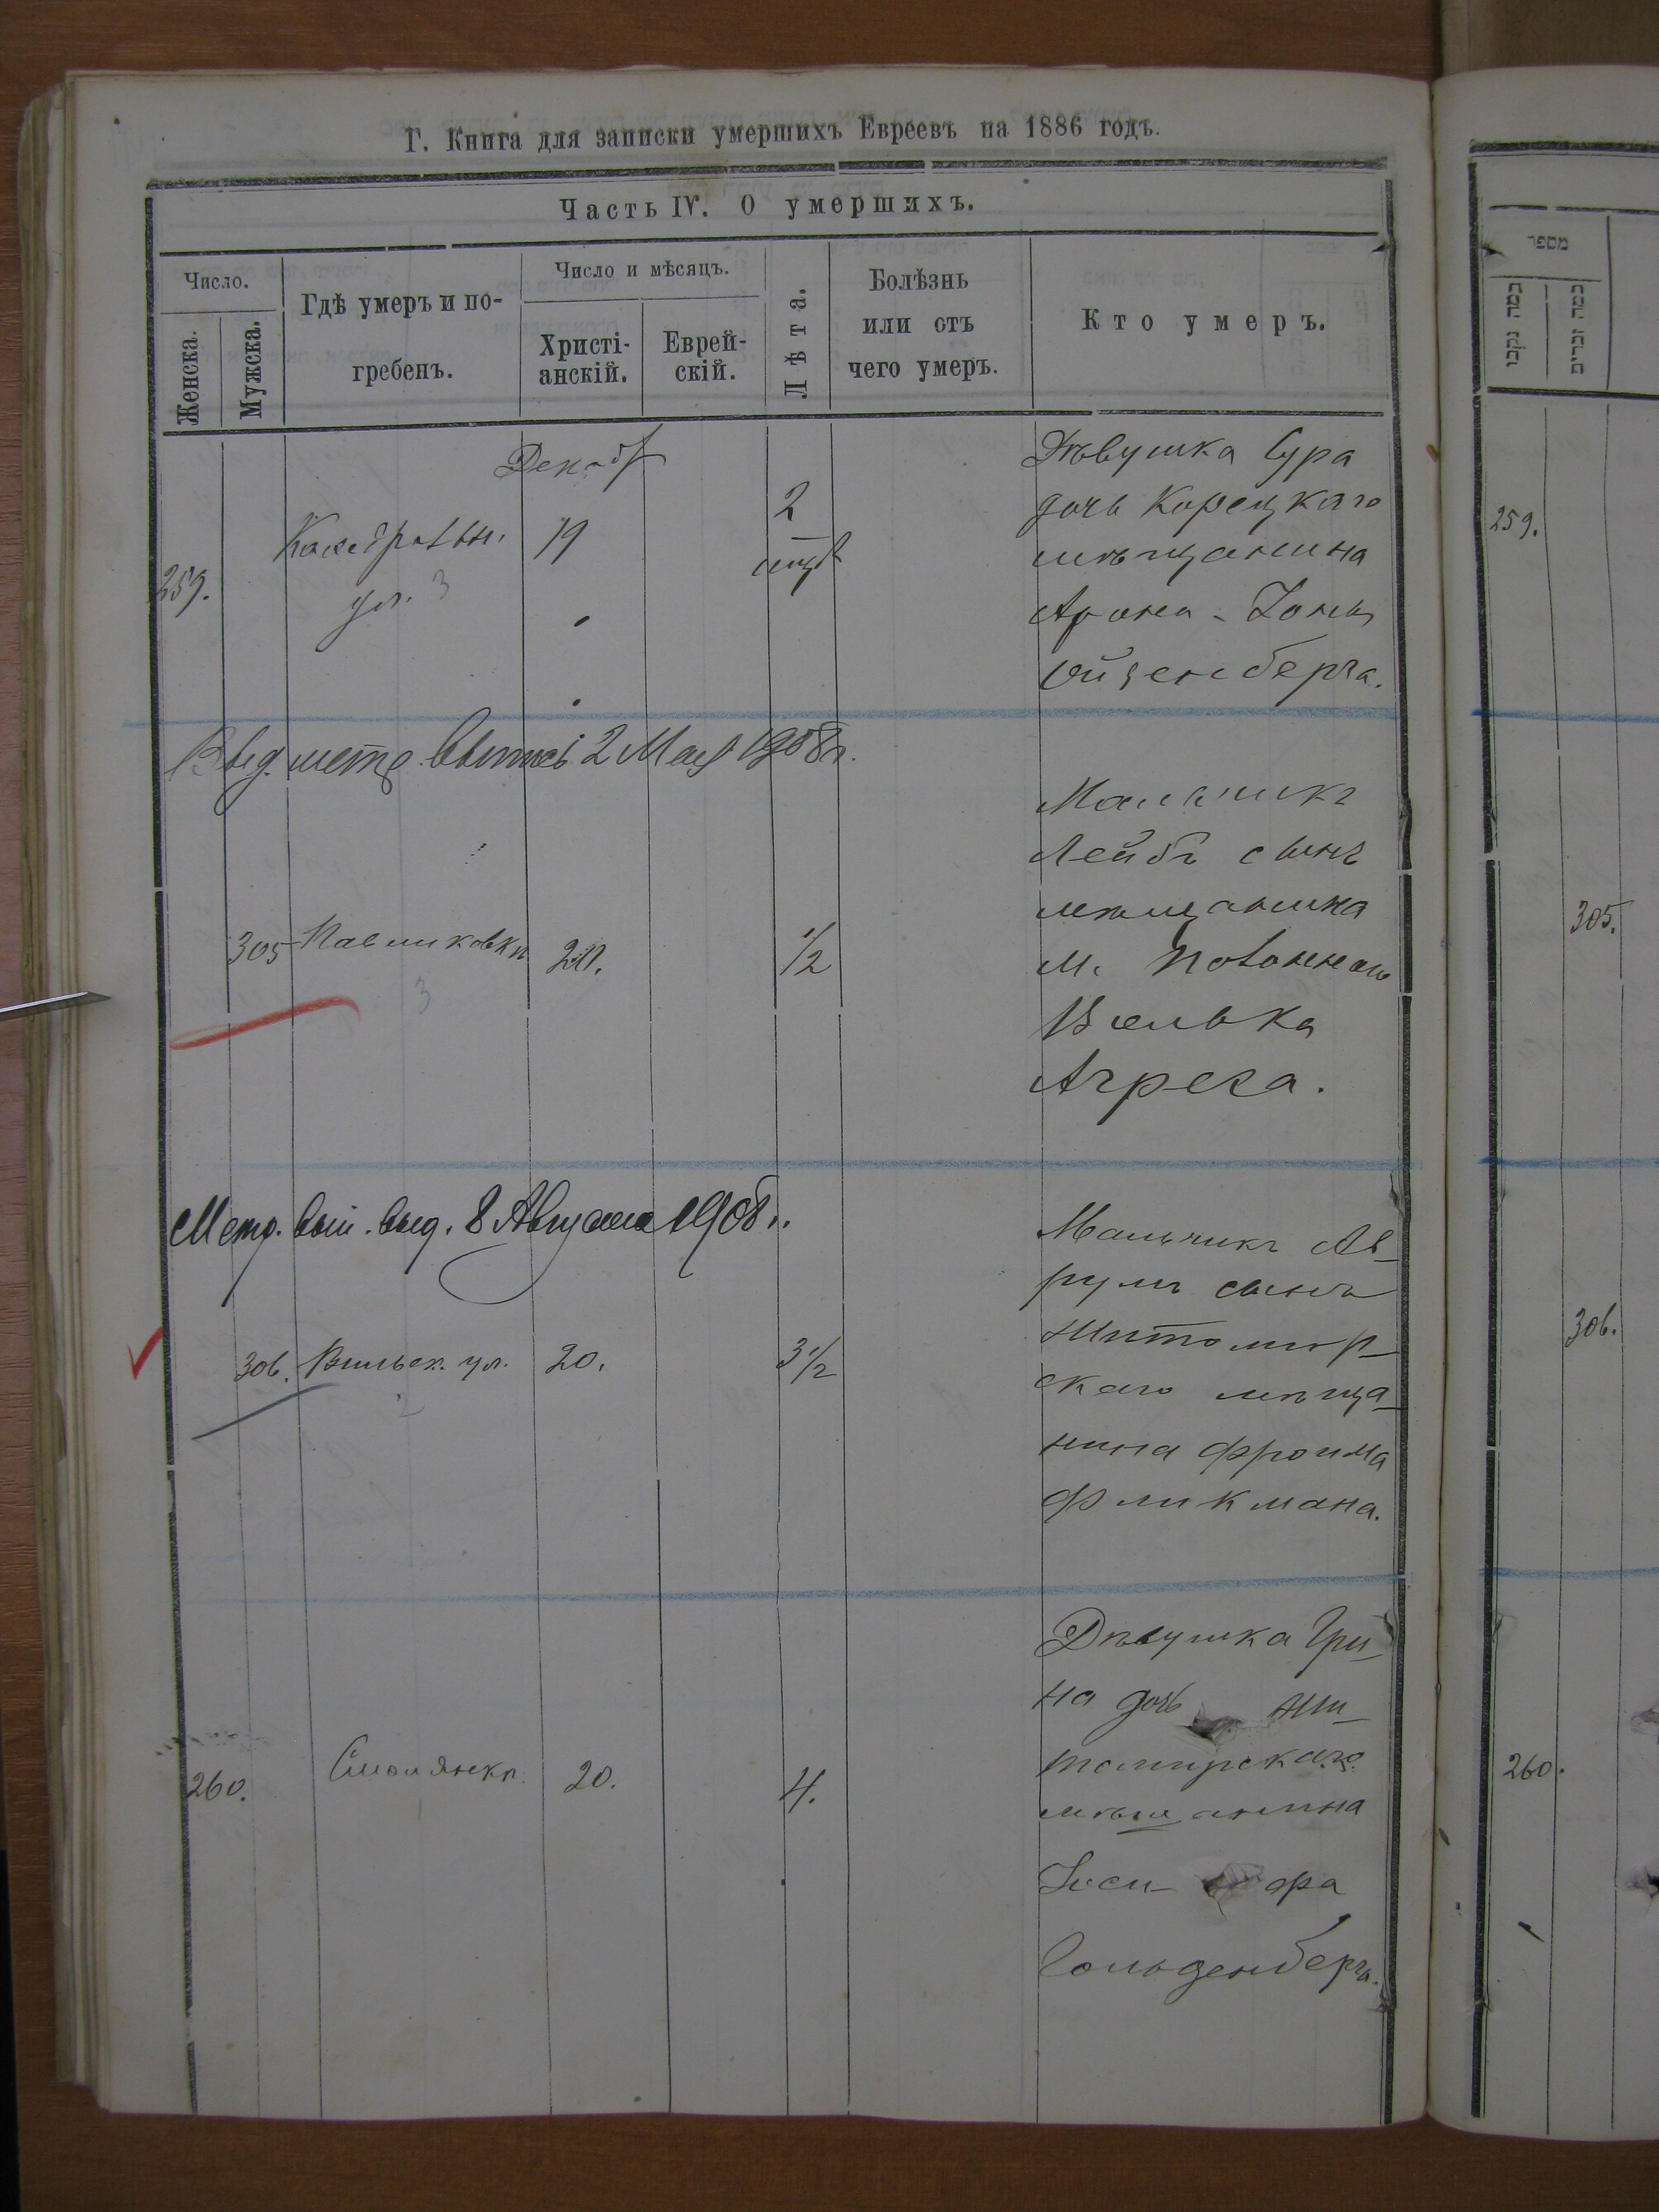 Г. Книга для записки умершихъ Евреевъ на 1886 годъ.
Часть IV. О умершихъ.
Число.
Женска.
Мужска.
Гдѣ умеръ и по-
гребенъ.
Число и мѣсяцъ.
Христі-
анскій.
Еврей-
скій.
Лѣта.
Болѣзнь
или отъ
чего умеръ.
Кто умеръ.
Декаб
259.
ул. 3
19
2
Дѣвушка Сура
дочь Корецкаго
мѣщанина
Арона-
Ойзенберга.
Выд. метр. 2 Мая 1908 г.
305
3
20.
1/2
Мальчикъ
Лейбъ сынъ
мѣщанина
м.
Велька
Агреса.
Метр. вып. выд. 8 Августа 1908 г.
306.
Вильск. ул.
2
20.
3 1/2
Мальчикъ Ав-
румъ сынъ
Житомир-
скаго мѣща-
нина Фроима
Фликмана.
260.
Смолянкѣ.
20.
4.
Дѣвушка
на дочь Жи-
томирскаго
мѣщанина
Іоси-фа
Гольденберга.
מספר
כמה נקבו׳
כמה זכרים
259.
305.
306.
260.